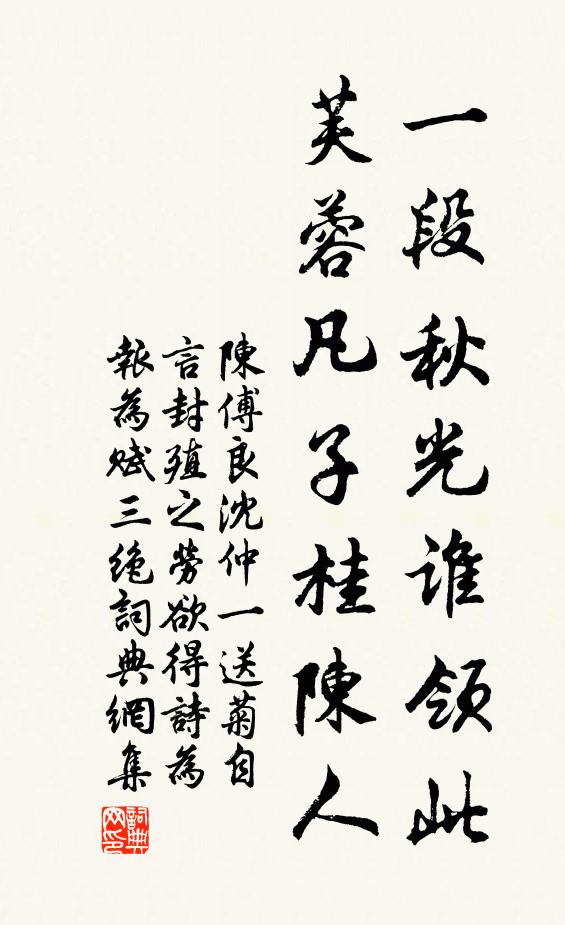 一段秋光誰領此
芙蓉凡子桂陳人
陳傅良沈仲一送菊自
言封殖之勞欲得詩為
報為賦三絶詞典網集
詞典网印